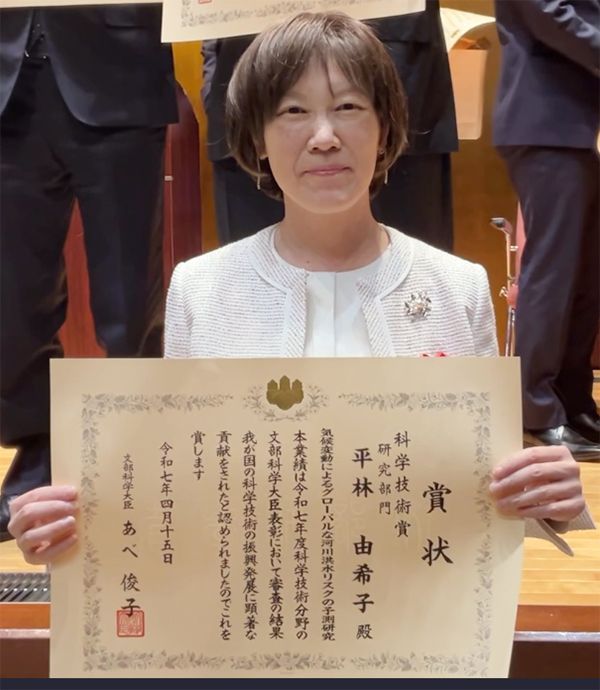 賞状
科学技術賞
研究部門
平林 由希子 殿
気候変動によるグローバルな河川洪水リスクの予測研究
本業績は令和七年度科学技術分野の
文部科学大臣表彰において審査の結果
我が国の科学技術の振興発展に顕著な
貢献をされたと認められましたのでこれを
賞します
令和七年四月十五日
文部科学大臣 あべ 俊子